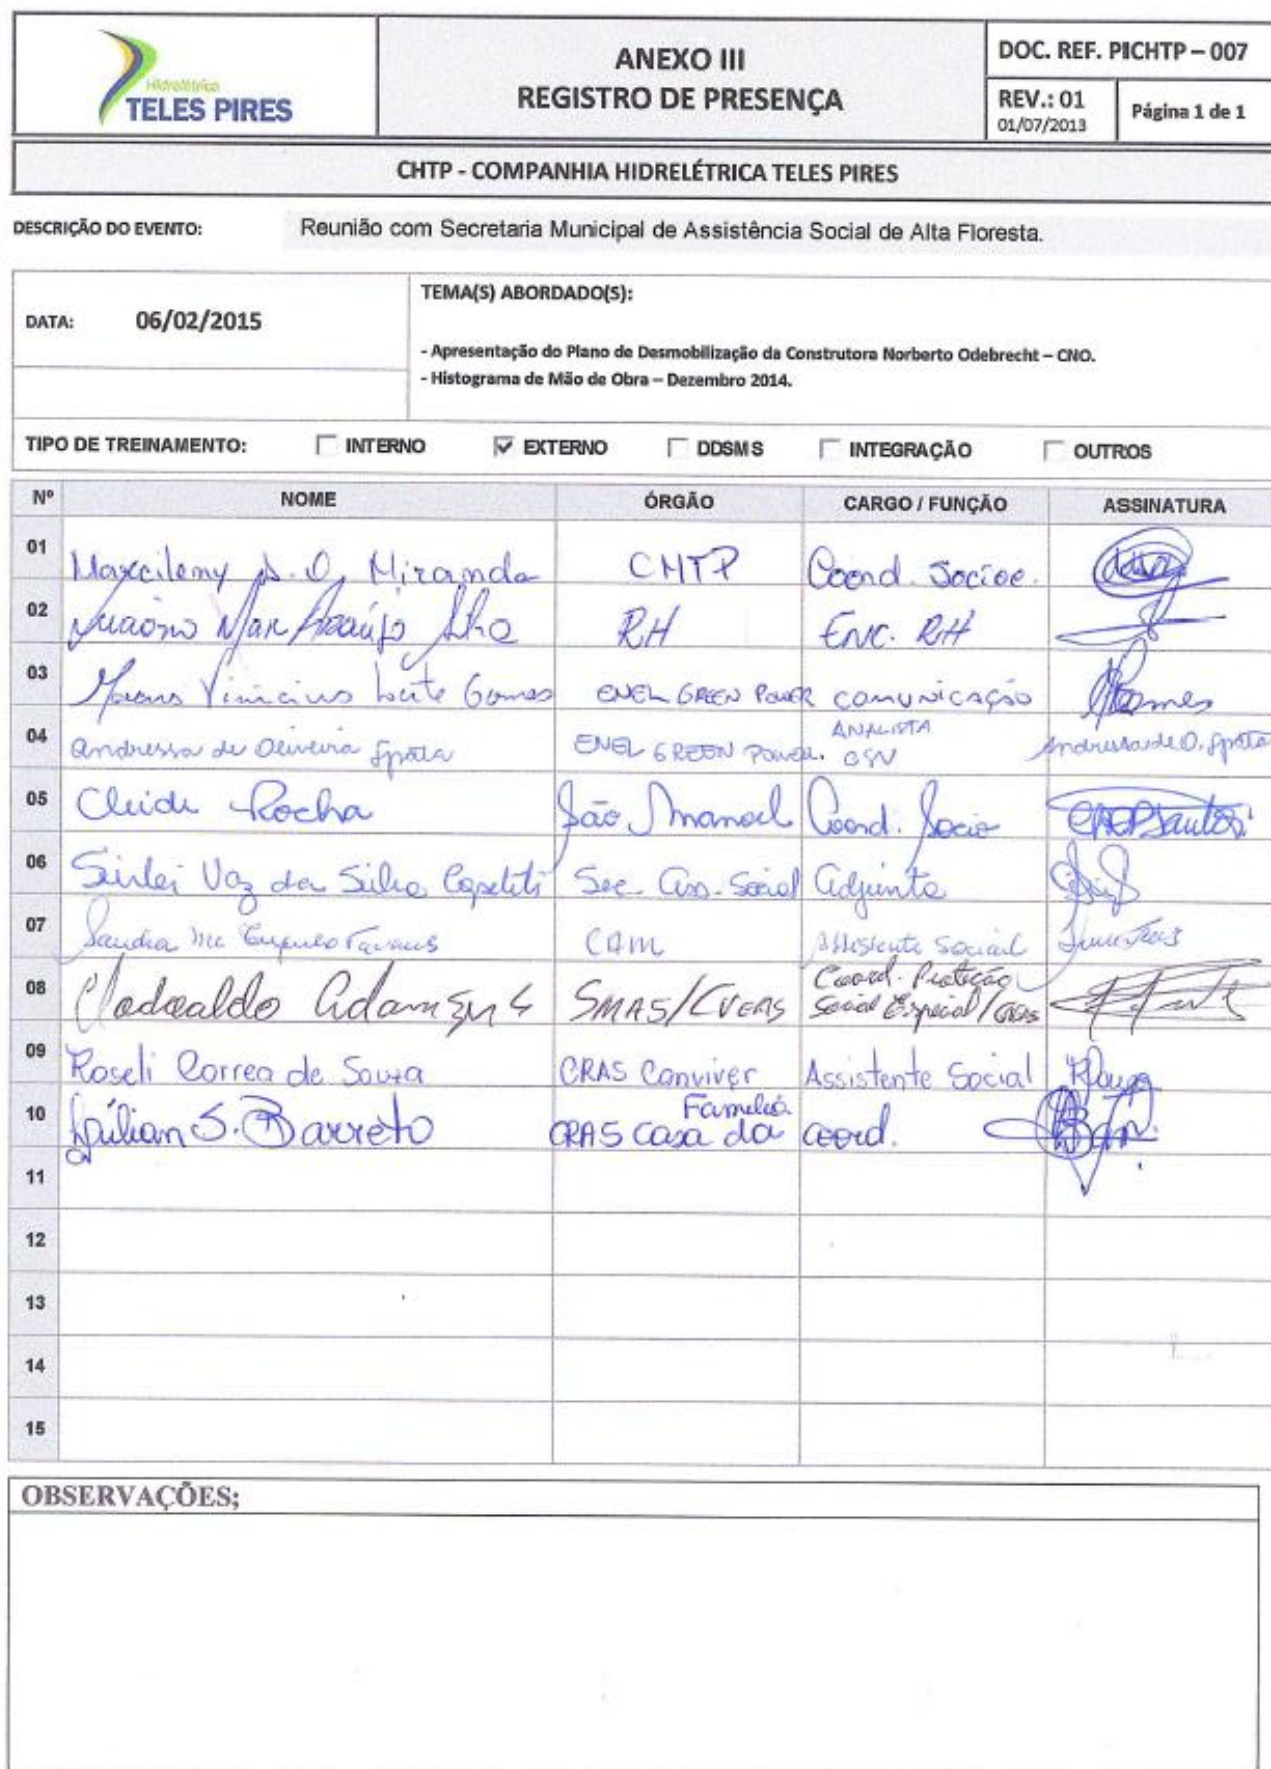 Hidrelétrica
TELES PIRES
ANEXO III
REGISTRO DE PRESENÇA
DOC. REF. PICHTP – 007
REV.: 01
01/07/2013
Página 1 de 1
CHTP - COMPANHIA HIDRELÉTRICA TELES PIRES
DESCRIÇÃO DO EVENTO: Reunião com Secretaria Municipal de Assistência Social de Alta Floresta.
DATA: 06/02/2015
TEMA(S) ABORDADO(S):
- Apresentação do Plano de Desmobilização da Construtora Norberto Odebrecht – CNO.
- Histograma de Mão de Obra – Dezembro 2014.
TIPO DE TREINAMENTO: INTERNO EXTERNO DDSMS INTEGRAÇÃO OUTROS
Nº NOME ÓRGÃO CARGO / FUNÇÃO ASSINATURA
01 Maxcilemy A. O. Miranda CHTP Coord. Socioe.
02 Araújo RH Enc. RH
03 Marcus Vinicius Leite Gomes ENEL GREEN POWER COMUNICAÇÃO
04 Andressa de Oliveira ENEL GREEN POWER. ANALISTA
05 Cleide Rocha São Manoel Coord. Socio
06 Sirlei Vaz da Silva Sec. Ass. Social Adjunta
07 Sandra CAM Assistente Social
08 Clodoaldo SMAS/CREAS Coord. Proteção
Social Especial/
09 Roseli Correa de Souza CRAS Conviver Assistente Social
10 Lílian S. Barreto CRAS Casa da Família Coord.
11
12
13
14
15
OBSERVAÇÕES;